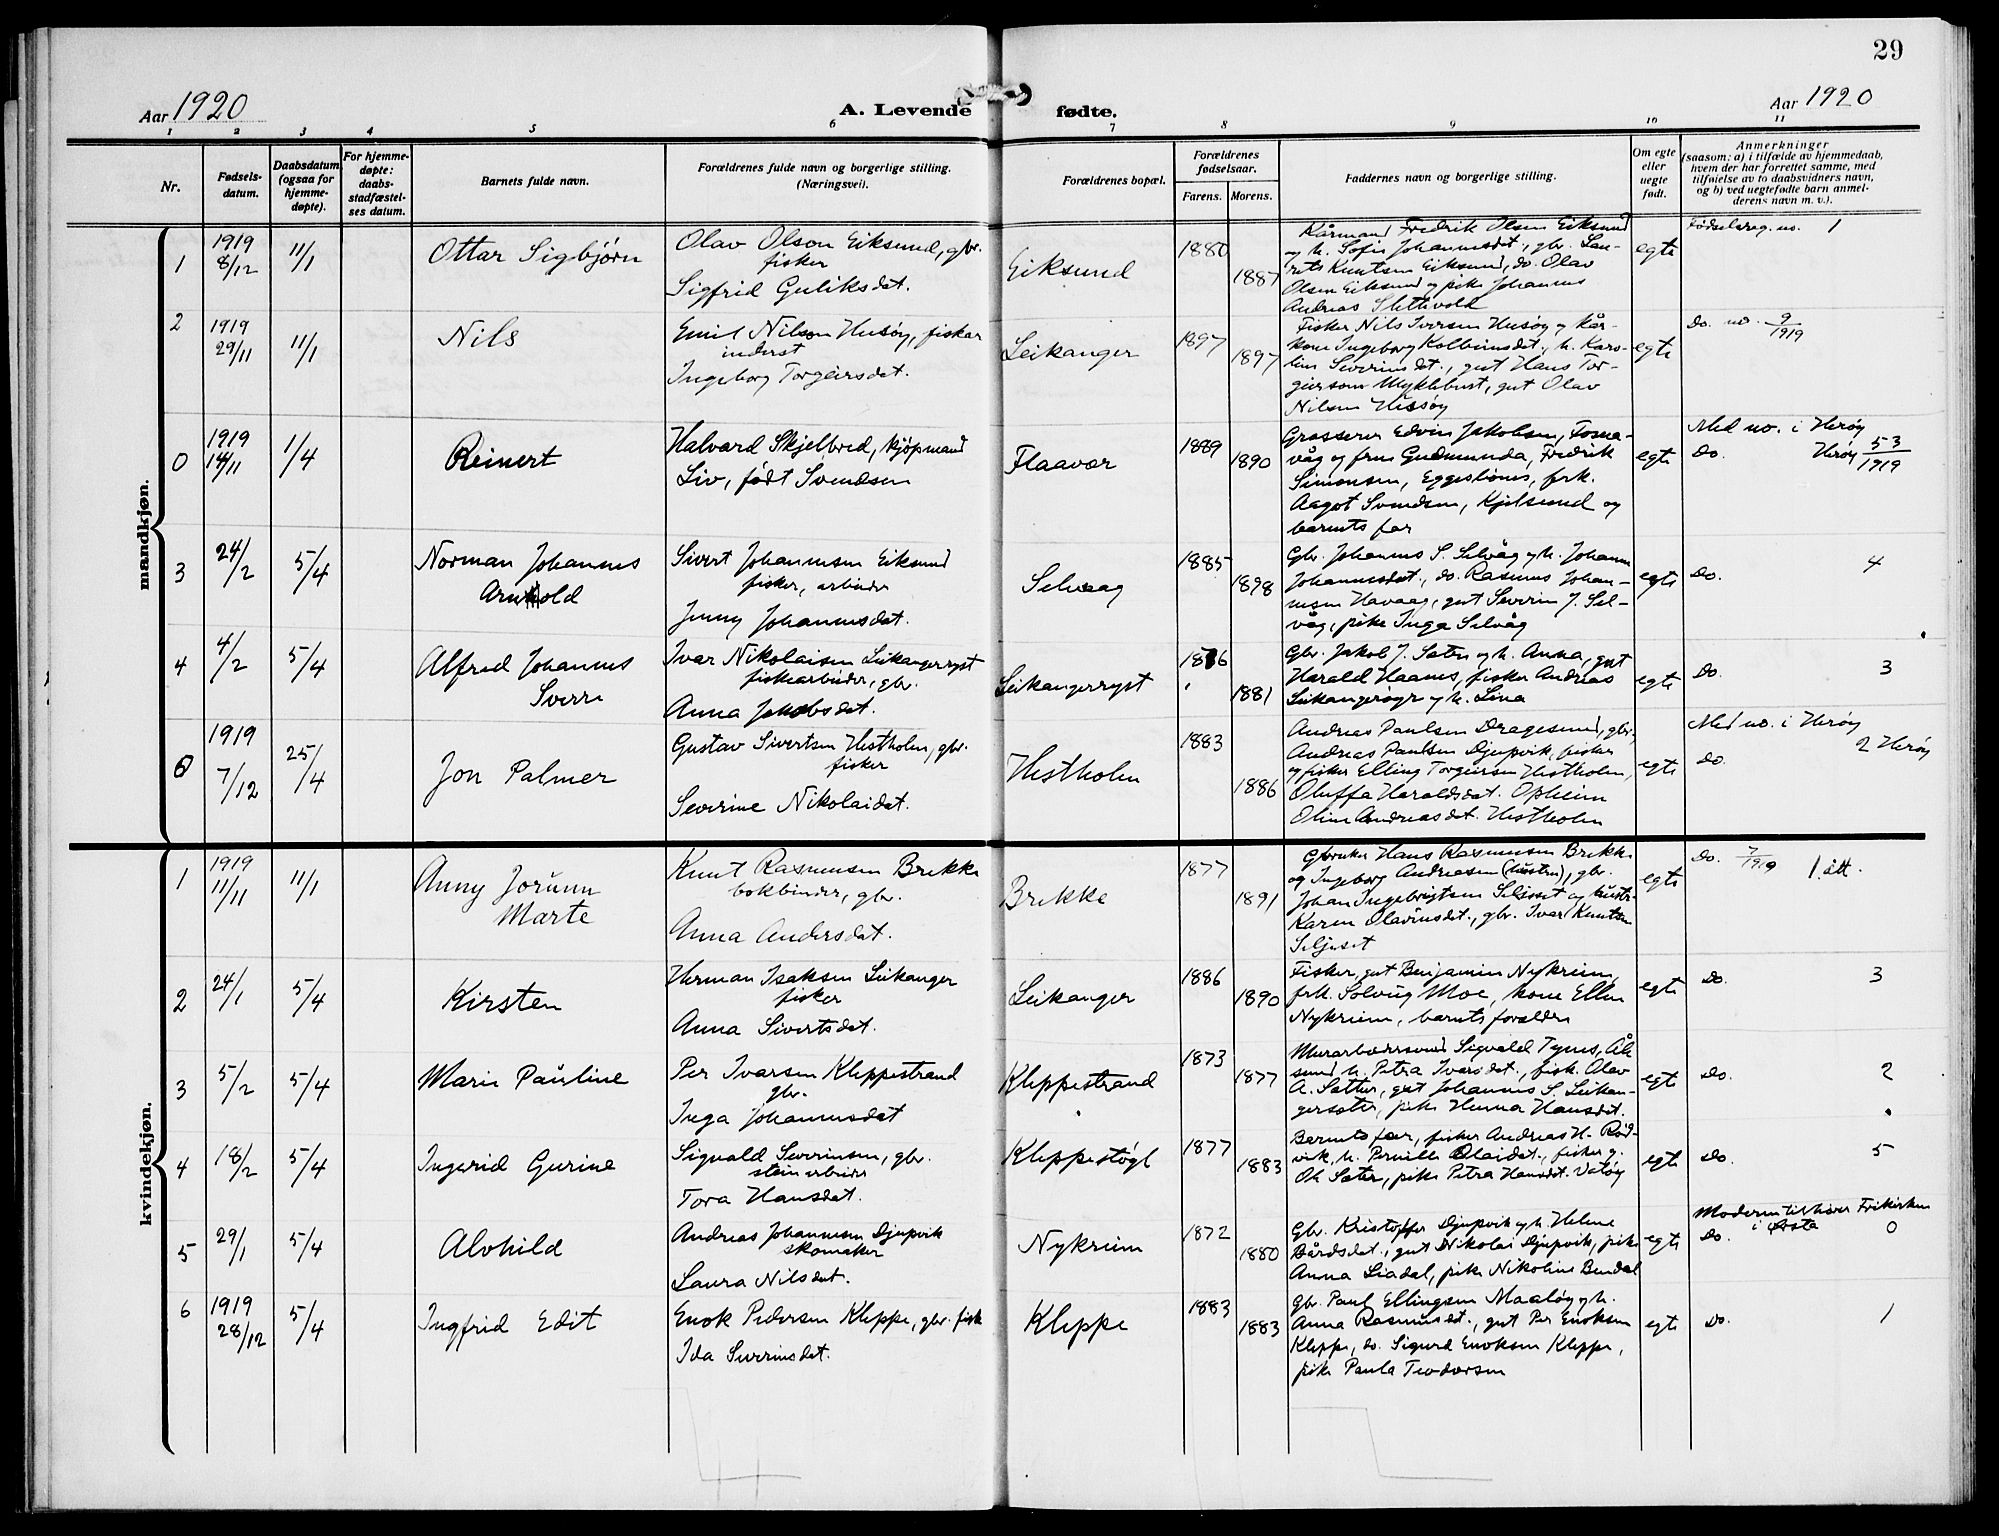 29
Aar 1920
A. Levende fødte.
Aar 1920
1 2 3 4 5 6 7 8 9 10 11
Nr.
Fødsels-
datum.
Daabsdatum
(ogsaa for
hjemme-
døpte).
For hjemme-
døpte:
daabs-
stadfæstel-
ses datum.
Barnets fulde navn.
Forældrenes fulde navn og borgerlige stilling.
(Næringsvei).
Forældrenes bopæl.
Forældrenes
fødselsaar.
Farens. Morens.
Faddernes navn og borgerlige stilling.
Om egte
eller
uegte
født.
Anmerkninger
(saasom: a) i tilfælde av hjemmedaab,
hvem der har forrettet samme, med
tilføielse av to daabsvidners navn,
og b) ved uegtefødte barn anmel-
derens navn m. v.).
mandkjøn.
1
1919
8/12
11/1
Ottar Sigbjørn
Olav Olson Eiksund, gbr.
fisker
Sigfrid Guliksdat.
Eiksund
1880
1887
Kårmand Fredrik Olsen Eiksund
og h. Sofie Johannesdat., gbr. Lau-
rits Knutsen Eiksund, do. Olav
Olsen Eiksund og pike Johannes
Andreas Slettevold
egte
Fødselsreg. no. 1
2
1919
29/11
11/1
Nils
Emil Nilsen Husøy, fisker
inderst
Ingeborg Torgeirsdat.
Leikanger
1897
1897
Fisker Nils Iversen Husøy og kår-
kone Ingeborg Kolbeinsdat., h. Karo-
line Severinsdat., gut Hans Tor-
geirson Myklebust, gut Olav
Nilsen Husøy
egte
Do. no. 9/1919
0
1919
14/11
1/4
Reinert
Halvard Skjelbred, kjøpmand
Liv, født Svendsen
Flaavær
1889
1890
Grosserer Edvin Jakobsen, Fosna-
våg og frue Gudmunda, Fredrik
Simonsen, Eggesbønes, frk.
Aagot Svendsen, Kjelsund og
barnets far
egte
Med no. i Herøy
Do. Herøy 53/1919
3
24/2
5/4
Norman Johannes
Arnold
Sivert Johannesen Eiksund
fisker, arbeider
Jenny Johannesdat.
Selvaag
1885
1898
Gbr. Johannes S. Selvåg og h. Johanne
Johannesdat., do. Rasmus Johan-
nesen Havaag, gut Severin J. Sel-
våg, pike Inga Selvåg
egte
Do. 4
4
4/2
5/4
Alfred Johannes
Sverre
Ivar Nikolaisen Leikangerryst
fiskearbeider, gbr.
Anna Jakobsdat.
Leikangerryst
1876
1881
Gbr. Jakob J. Sæter og h. Anna, gut
Harald Haanes, fisker Andreas
Leikangerøyr og h. Lina
egte
Do. 3
0
1919
7/12
25/4
Jon Palmer
Gustav Sivertsen Hestholm, gbr.
fisker
Severine Nikolaidat.
Hestholm
1883
1886
Andreas Paulsen Dragesund, gbr,
Andreas Paulsen Djupvik, fisker
og fisker Elling Torgeirsen Hestholm,
Oluffa Haraldsdat. Opheim
Oline Andreasdat. Hestholm
egte
Med no. i Herøy
Do. 2 Herøy
kvindekjøn.
1
1919
11/11
11/1
Anny Jorunn
Marte
Knut Rasmussen Brekke
bokbinder, gbr.
Anna Andersdat.
Brekke
1877
1891
Gbruker Hans Rasmussen Brekke
og Ingeborg Andreasen (hustru), gbr.
Johan Ingebrigtsen Seljeset og hustr.
Karen Olavinsdat., gbr. Ivar Knutsen
Seljeset
egte
Do. 7/1919 1. att.
2
24/1
5/4
Kirsten
Herman Isaksen Leikanger
fisker
Anna Sivertsdat.
Leikanger
1886
1890
Fisker, gut Benjamin Nykreim,
frk. Solveig Moe, kone Ellen
Nykreim, barnets forældre
egte
Do. 3
3
5/2
5/4
Marie Pauline
Per Ivarsen Kleppestrand
gbr.
Inga Johannesdat
Kleppestrand
1873
1877
Murarbeidersvend Sigvald Tynes, Åle-
sund h. Petra Ivarsdat., fisk. Olav
A. Sætter, gut Johannes S. Leikan-
gersæter, pike Henna Hansdat.
egte
Do. 2
4
18/2
5/4
Ingerid Gurine
Sigvald Severinsen, gbr.
steinarbeider
Tora Hansdat.
Kleppestøyl
1877
1883
Barnets far, fisker Andreas H. Röd-
vik, h. Pernille Olaidat., fisker g.
Ole Sæter, pike Petra Hansdat. Vatøy
egte
Do. 5
5
29/1
5/4
Alvhild
Andreas Johannesen Djupvik
skomaker
Laura Nilsdat.
Nykreim
1872
1880
Gbr. Kristoffer Djupvik og h. Helene
Bårdsdat., gut Nikolai Djupvik, pike
Anna Liadal, pike Nikoline Bendal
egte
Moderen tilhører Frikirken
i Ørsta
Do. 0
6
1919
28/12
5/4
Ingfrid Edit
Enok Pedersen Kleppe, gbr. fisk
Ida Severinsdat.
Kleppe
1883
1883
Gbr. Paul Ellingsen Maaløy og h.
Anna Rasmusdat., gut Per Enoksen
Kleppe, do. Sigurd Enoksen Kleppe,
pike Paula Teodorsen
egte
Do. 1